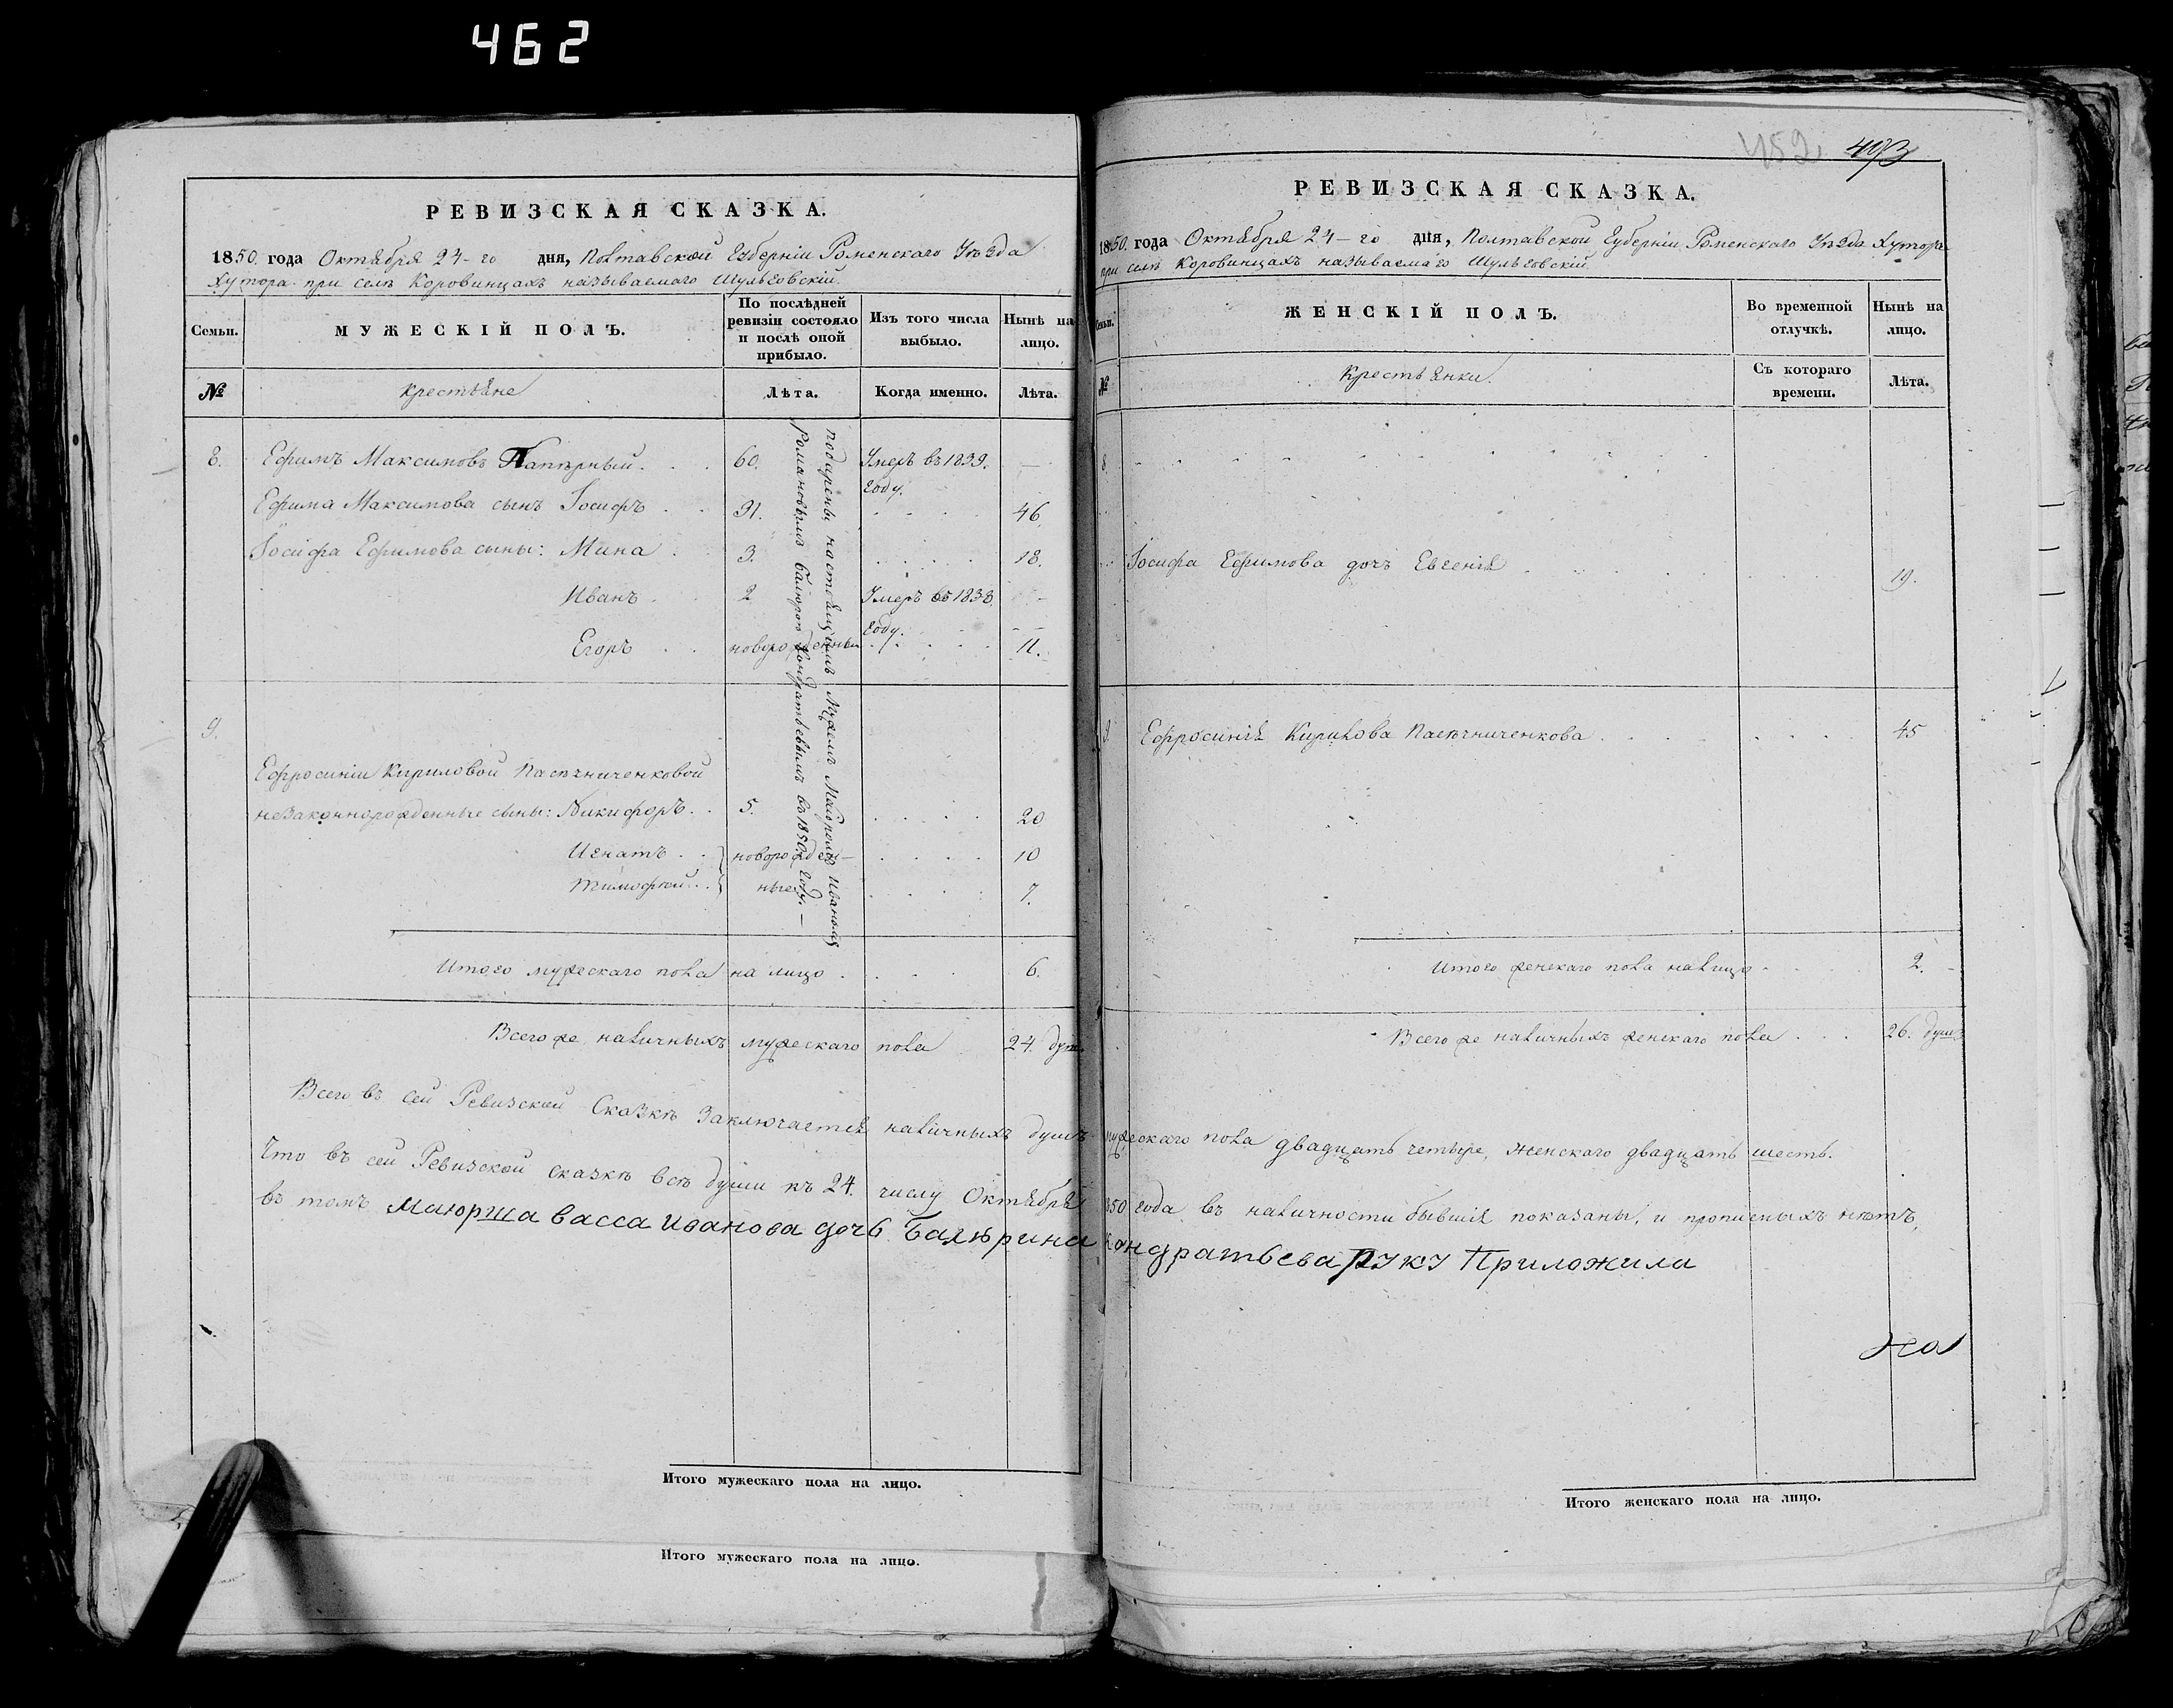 462
РЕВИЗСКАЯ СКАЗКА.
1850 года Октября 24-го дня, Полтавской Губерніи Роменскаго Уѣзда
Хутора при селѣ Коровинцахъ называемаго Шульговскій.
Семьи. МУЖЕСКІЙ ПОЛЪ. По послѣдней ревизіи состояло и послѣ оной прибыло. Изъ того числа выбыло. Нынѣ на лицо.
№ Крестьяне Лѣта. Когда именно. Лѣта.
8. Ефимъ Максимовъ 60. Умеръ въ 1839. —
году.
Ефима Максимова сынъ Іосифъ 31. 46.
Іосифа Ефимова сыны: Мина 3. 18.
Иванъ 2 Умеръ въ 1838. —
году.
Егоръ новорожденный 11.
подарены настоящимъ Мужемъ Маіоромъ Иваномъ
Романовымъ Кондратьевымъ въ 1850 году. —
9.
Ефросиніи Кириловой Пасѣчниченковой
незаконнорожденные сыны: Никифоръ 5. 20
Игнатъ новорожден- 10
Тимофей ные 7.
Итого мужескаго пола на лицо 6.
Всего же наличныхъ мужескаго пола 24. душ.
Итого мужескаго пола на лицо.
Итого мужескаго пола на лицо.
452 493
РЕВИЗСКАЯ СКАЗКА.
1850 года Октября 24-го дня, Полтавской Губерніи Роменскаго Уѣзда Хутора
при селѣ Коровинцахъ называемаго Шульговскій.
Семьи. ЖЕНСКІЙ ПОЛЪ. Во временной отлучкѣ. Нынѣ на лицо.
№ Крестьянки. Съ котораго времени. Лѣта.
8.
Іосифа Ефимова дочь Евгенія 19.
9. Ефросинія Кирилова Пасѣчниченкова 45
Итого женскаго пола налицо 2.
Всего же наличныхъ женскаго пола 26. душъ
Всего въ сей Ревизской Сказкѣ Заключается наличныхъ душъ мужескаго пола двадцать четыре, Женскаго двадцать шесть.
Что въ сей Ревизской сказкѣ всѣ души къ 24. числу Октября 1850 года въ наличности бывшія показаны, и прописныхъ нѣтъ,
въ томъ Маюрша васса иванова дочь Кондратьева руку Приложила
Итого женскаго пола на лицо.